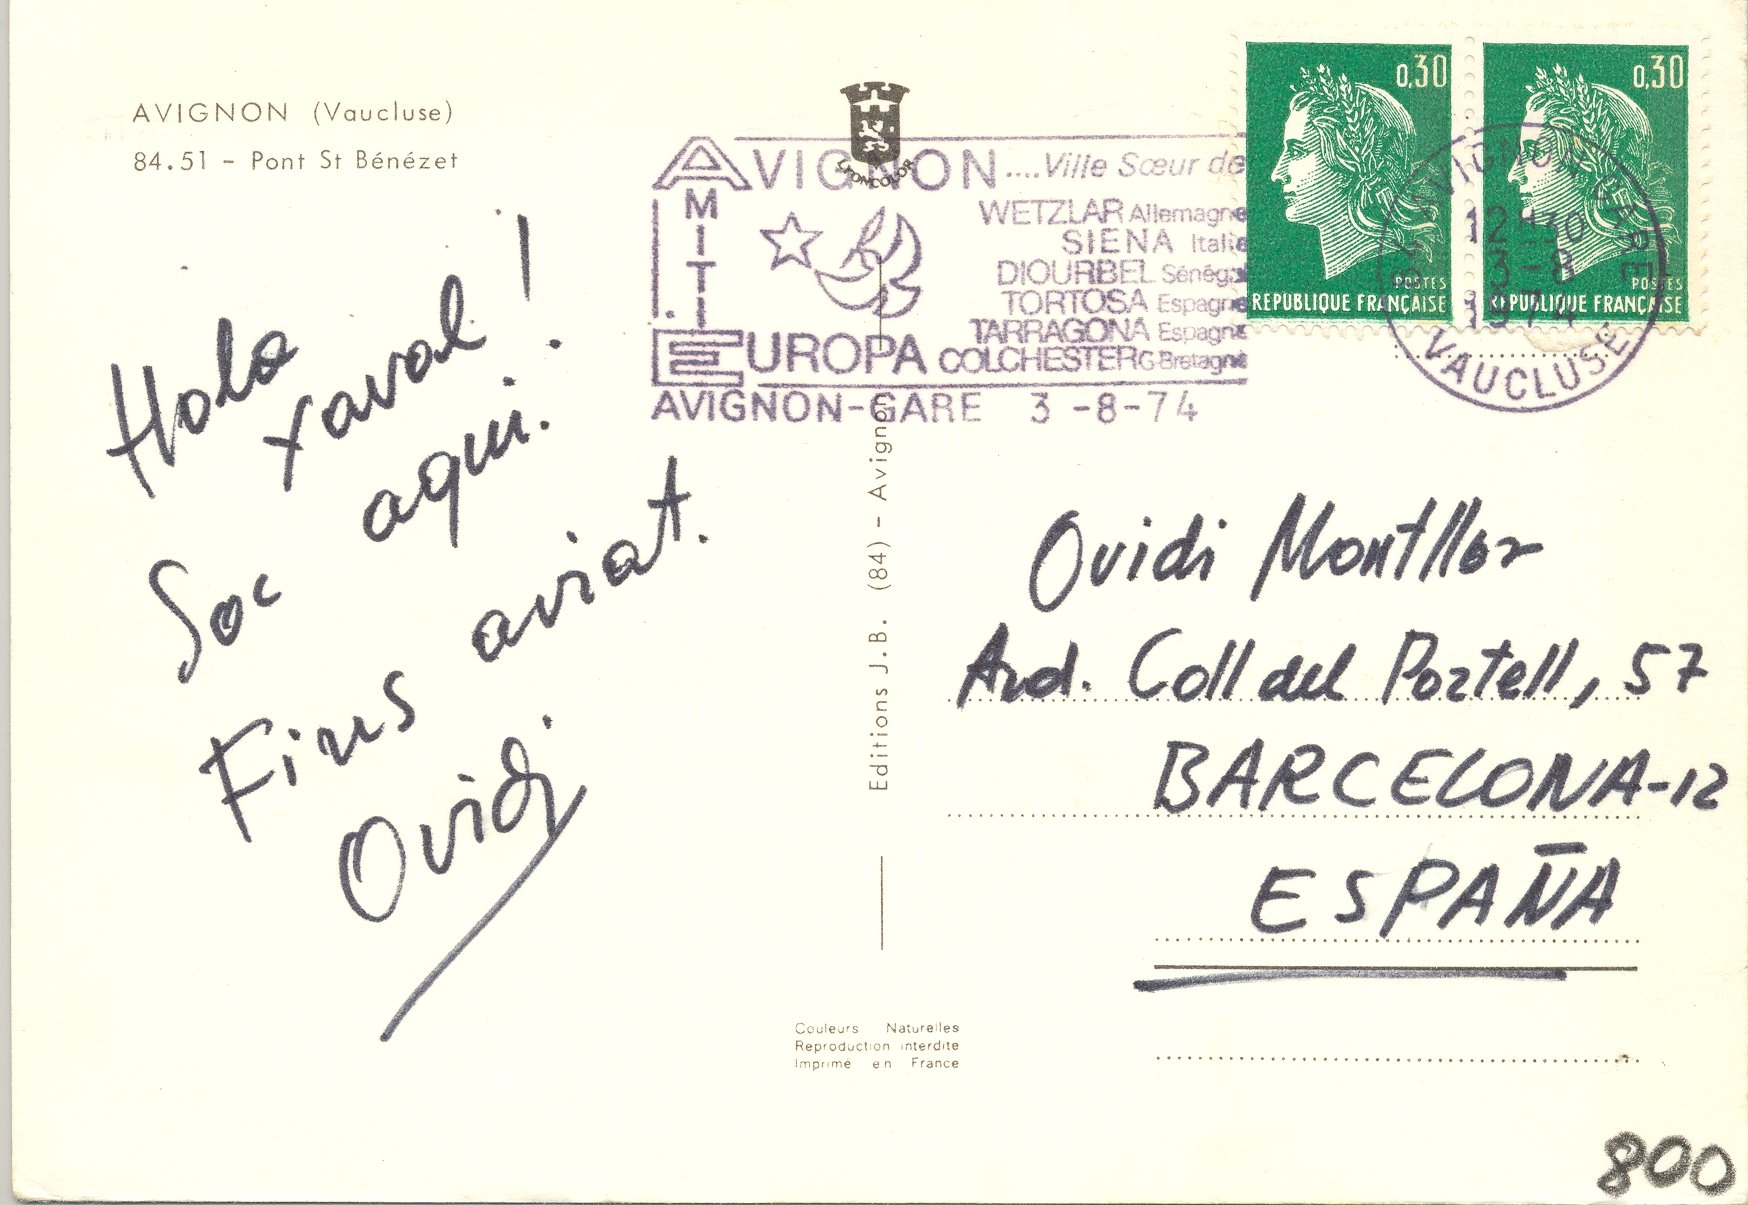 AVIGNON (Vaucluse)
84.51 - Pont St Bénézet
Hola
xaval!
Soc aquí.
Fins aviat.
Ovidi
LYONCOLOR
AVIGNON....Ville Sœur de
AMITIE
WETZLAR Allemagne
SIENA Italie
DIOURBEL Sénégal
TORTOSA Espagne
TARRAGONA Espagne
EUROPA COLCHESTER G-Bretagne
AVIGNON-GARE 3 -8-74
0,30
POSTES
REPUBLIQUE FRANÇAISE
0,30
POSTES
REPUBLIQUE FRANÇAISE
AVIGNON GARE
12 H 30
3 - 8
1974
VAUCLUSE
Editions J.B. (84) - Avignon
Ovidi Montllor
Avd. Coll del Portell, 57
BARCELONA-12
ESPAÑA
Couleurs Naturelles
Reproduction interdite
Imprimé en France
800